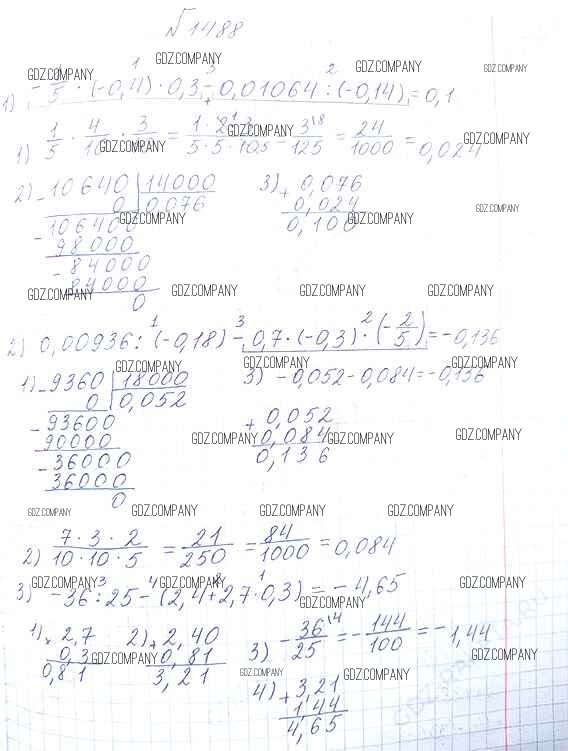 № 1488
GDZ.COMPANY GDZ.COMPANY GDZ.COMPANY GDZ.COMPANY
1) -1/5 · (-0,4) · 0,3 - 0,01064 : (-0,14) = 0,1
1) 1/5 · 4/10 · 3/10 = = 3/125 = 24/1000 = 0,024
GDZ.COMPANY GDZ.COMPANY GDZ.COMPANY
2) - 10640 | 14000
0 | 0,076
- 106400
98000
- 84000
84000
0
3) + 0,076
0,024
0,100
GDZ.COMPANY GDZ.COMPANY GDZ.COMPANY
GDZ.COMPANY GDZ.COMPANY GDZ.COMPANY GDZ.COMPANY
2) 0,00936 : (-0,18) - 0,7 · (-0,3) · (-2/5) = -0,136
GDZ.COMPANY GDZ.COMPANY GDZ.COMPANY
1) - 9360 | 18000
0 | 0,052
- 93600
90000
- 36000
36000
0
3) -0,052 - 0,084 = -0,136
+ 0,052
0,084
0,136
GDZ.COMPANY GDZ.COMPANY GDZ.COMPANY
GDZ.COMPANY GDZ.COMPANY GDZ.COMPANY GDZ.COMPANY
2) 7 · 3 · 2 / 10 · 10 · 5 = 21/250 = 84/1000 = 0,084
GDZ.COMPANY GDZ.COMPANY GDZ.COMPANY GDZ.COMPANY
3) -36 : 25 - (2,4 + 2,7 · 0,3) = -4,65
1) × 2,7
0,3
0,81
2) + 2,40
0,81
3,21
3) -36/25 = -144/100 = -1,44
GDZ.COMPANY GDZ.COMPANY GDZ.COMPANY
GDZ.COMPANY GDZ.COMPANY
4) + 3,21
1,44
4,65